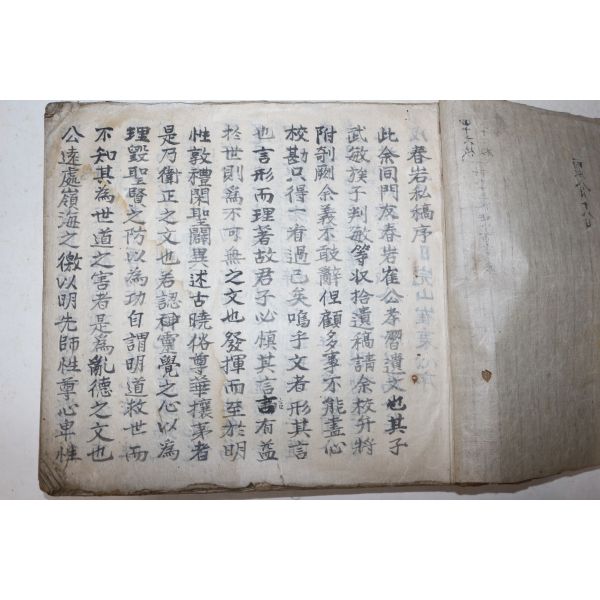 春岩私稿序
此余同門友春岩崔公孝習遺文也其子
武敏族子判敏等収拾遺稿請余校弁將
附剞劂余義不敢辭但顧多事不能盡心
校勘只得一看過已矣嗚乎文者形其言
也言形而理著故君子必慎其言言有益
於世則為不可無之文也發揮而至於明
性敦禮閑聖闢異述古曉俗尊華攘夷者
是乃衛正之文也若認神靈覺之心以為
理毀聖賢之防以為功自謂明道救世而
不知其為世道之害者是為亂德之文也
公遠處嶺海之徼以明先師性尊心卑性